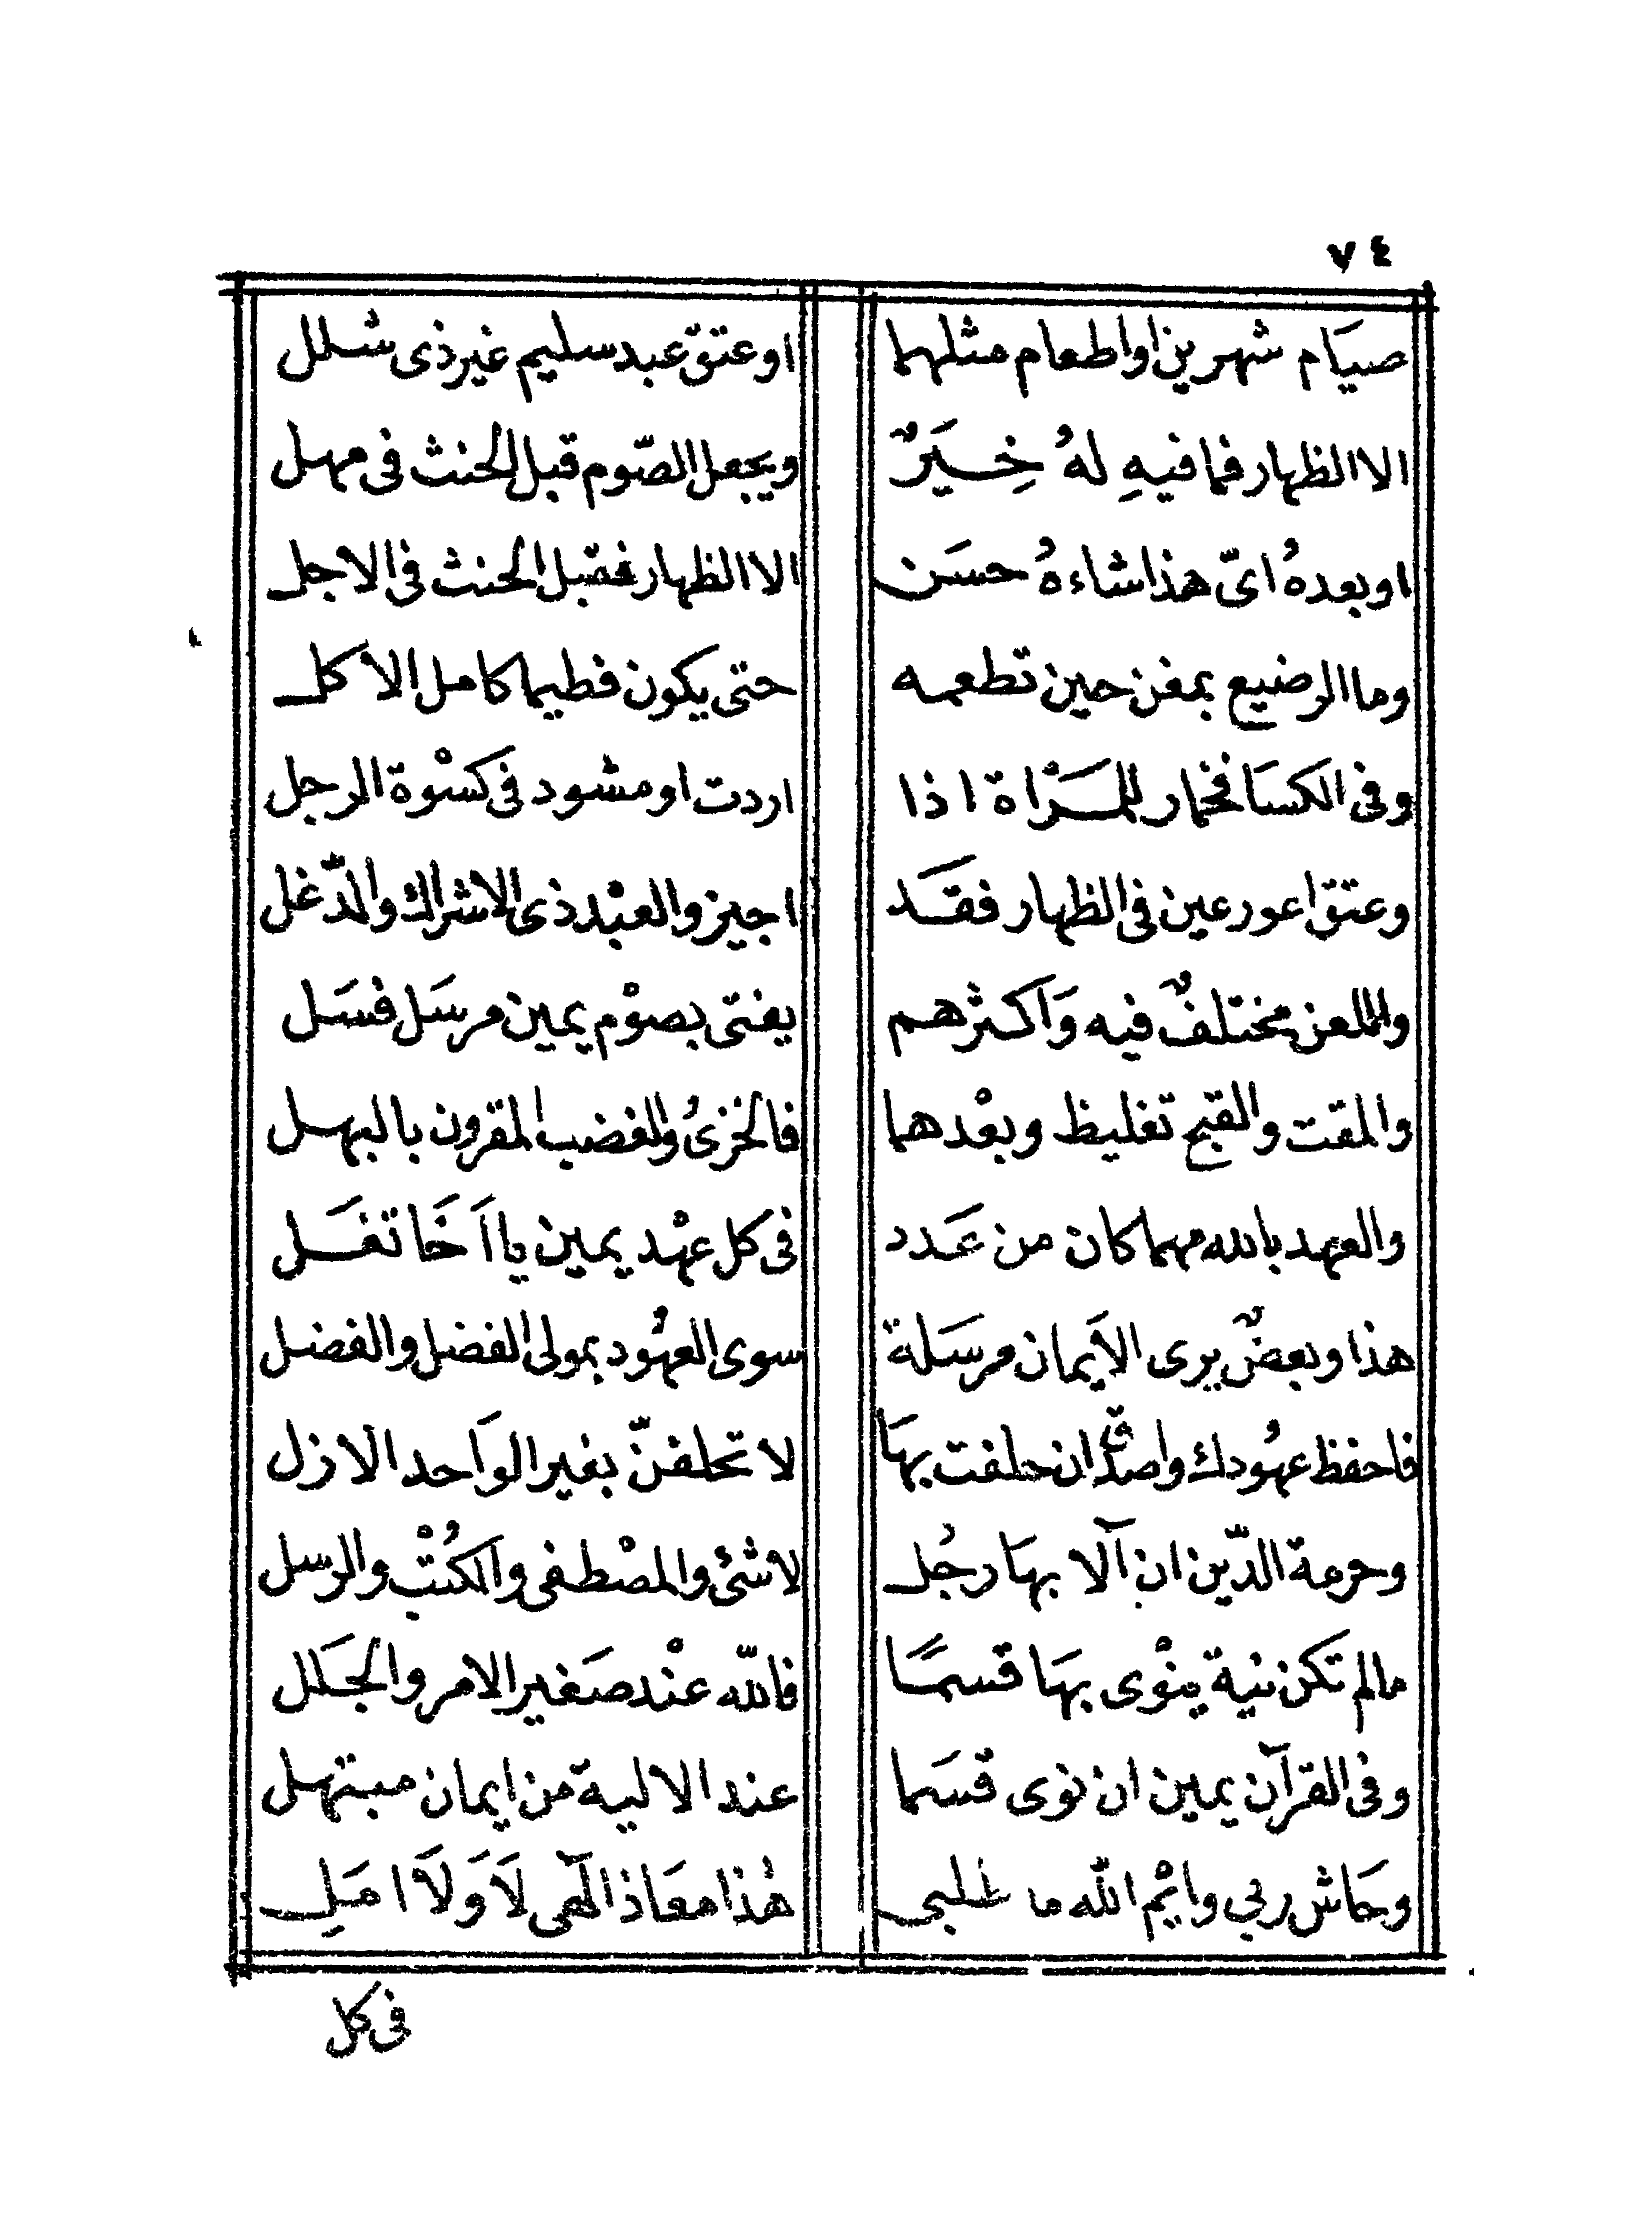 ٧٤
صيام شهرين او اطعام مثلهما او عتق عبد سليم غير ذى شلل
الا الظهار فما فيهِ لهُ خِيَرٌ ويجعل الصّوم قبل الحنث فى مهل
او بعدهُ اىّ هذا شاءهُ حسَن الا الظهار فقبل الحنث فى الاجل
وما الرضيع بمغن حين تطعمه حتى يكون فطيما كامل الاكل
وفى الكسَا فخمار للمَرْاة اذا اردت او مشوذ فى كسْوة الرجل
وعتق اعور عين فى الظهار فقَد اجيز والعبْد ذى الاشراك والدّغل
واللعن مختلفٌ فيه وَاَكثرهم يفتى بصوْم يمين مرسَل فسَل
والمقت والقبح تغليظ وبعْدهما فالخزىُ والغضب المقرون بالبهل
والعهد بالله مهما كان من عَدد فى كل عهْد يمين يا اَخَا تغَل
هذا وبعضٌ يرى الاَيمان مرسَلة سوى العهُود بمولى الفضل والفضل
فاحفظ عهُودك واصدُق ان حلفت بهَا لا تحلفنّ بغير الوَاحد الازل
وحرمة الدّين ان آلا بهَا رجُل لاشئ والمصْطفى وَالكُتْب والرسل
مالم تكن نية ينْوى بهَا قسمًا فاللّه عنْد صَغير الامر والجَلل
وفى القرآن يمين ان نوى قسَما عند الالية من ايمان مبتهل
وحَاش ربي وايْم اللّه ما غلبى هٰذا معَاذ الٓهى لَا وَلَا امَل
فى كل